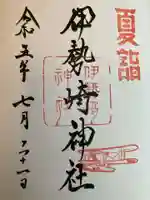 夏詣
伊勢崎神社
令和五年 七月二十一日